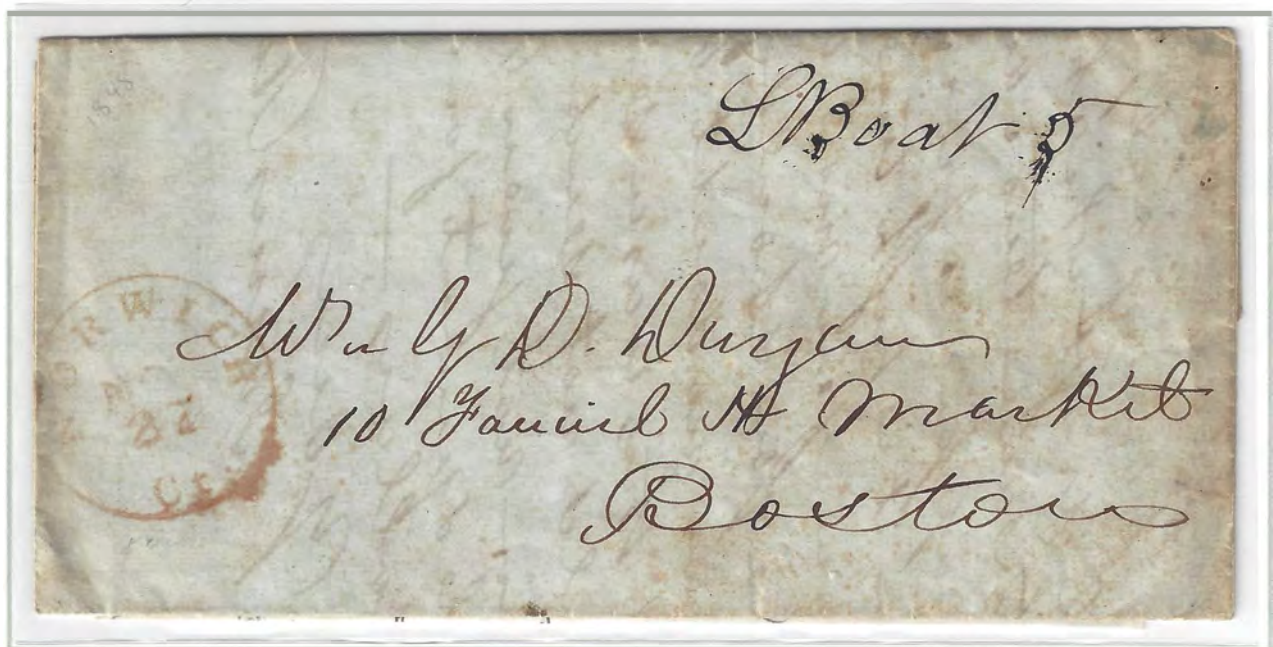 1848
S Boat 5
NORWICH
22
Ct
Wm G D. Durgan
10 Faneuil H Market
Boston